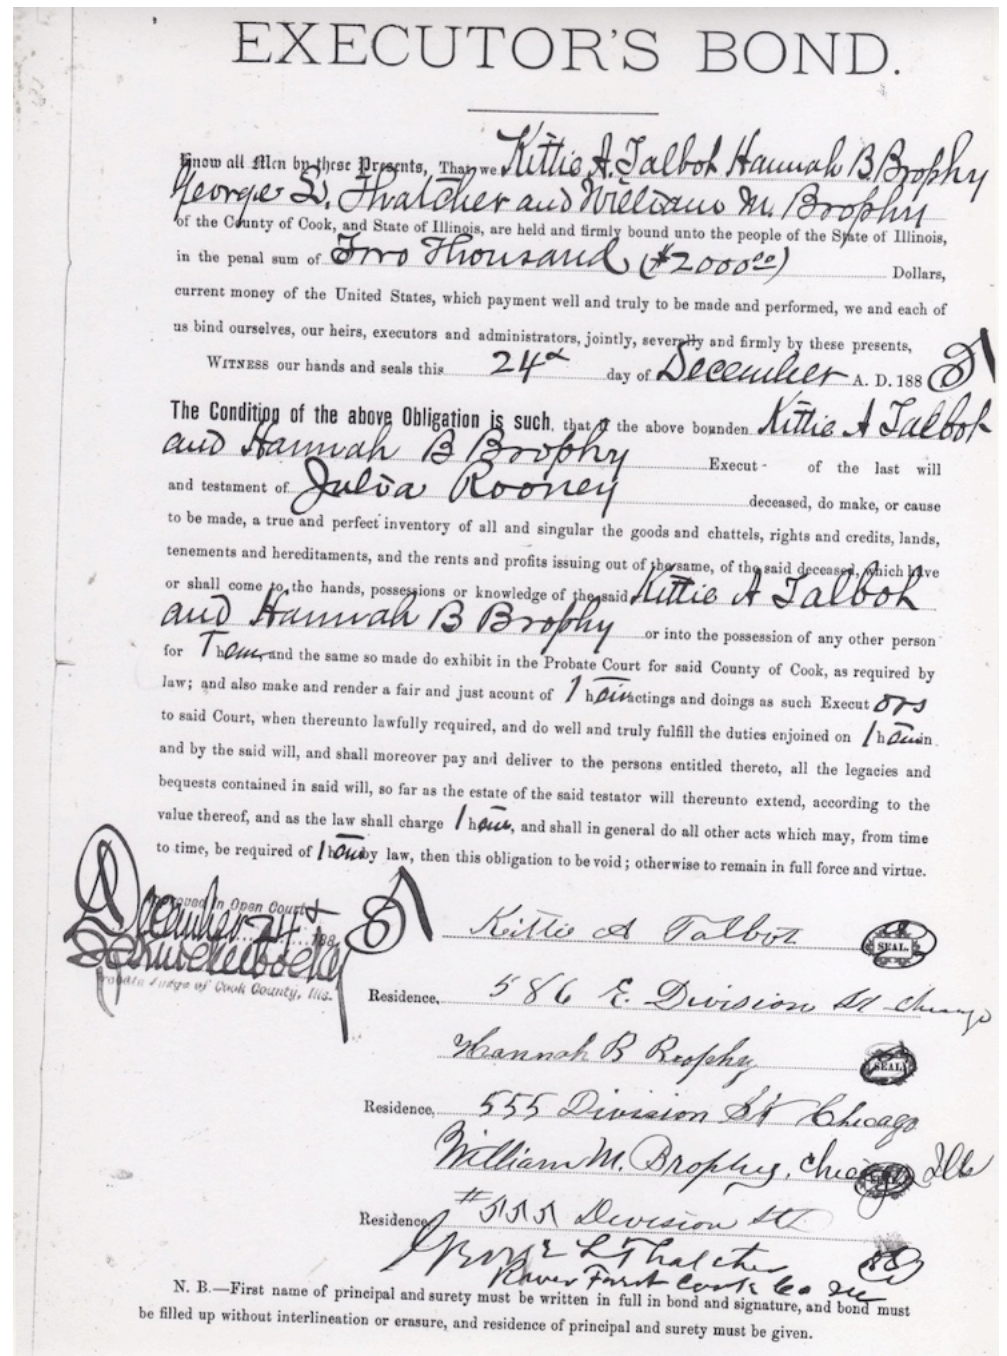 EXECUTOR'S BOND.
Know all Men by these Presents, That we Kittie A. Talbot Hannah B. Brophy
George L. Thatcher and William M. Brophy
of the County of Cook, and State of Illinois, are held and firmly bound unto the people of the State of Illinois,
in the penal sum of Two Thousand ($2000.00) Dollars,
current money of the United States, which payment well and truly to be made and performed, we and each of
us bind ourselves, our heirs, executors and administrators, jointly, severally and firmly by these presents,
WITNESS our hands and seals this 24th day of December A. D. 188
The Condition of the above Obligation is such, that if the above bounden Kittie A Talbot
and Hannah B Brophy Execut - of the last will
and testament of Julia Rooney deceased, do make, or cause
to be made, a true and perfect inventory of all and singular the goods and chattels, rights and credits, lands,
tenements and hereditaments, and the rents and profits issuing out of the same, of the said deceased, which have
or shall come to the hands, possessions or knowledge of the said Kittie A Talbot
and Hannah B Brophy or into the possession of any other person
for Them, and the same so made do exhibit in the Probate Court for said County of Cook, as required by
law; and also make and render a fair and just acount of Their actings and doings as such Executors
to said Court, when thereunto lawfully required, and do well and truly fulfill the duties enjoined on Them in
and by the said will, and shall moreover pay and deliver to the persons entitled thereto, all the legacies and
bequests contained in said will, so far as the estate of the said testator will thereunto extend, according to the
value thereof, and as the law shall charge Them, and shall in general do all other acts which may, from time
to time, be required of Them by law, then this obligation to be void; otherwise to remain in full force and virtue.
Approved in Open Court
December 24 188
Probate Judge of Cook County, Ills.
Kittie A Talbot SEAL.
Residence, 586 E. Division St Chicago
Hannah B Brophy SEAL
Residence, 555 Division St Chicago
William M. Brophy, Chicago Ills
Residence #555 Division St
George L Thatcher
River Forest Cook Co Ill
N. B.—First name of principal and surety must be written in full in bond and signature, and bond must
be filled up without interlineation or erasure, and residence of principal and surety must be given.